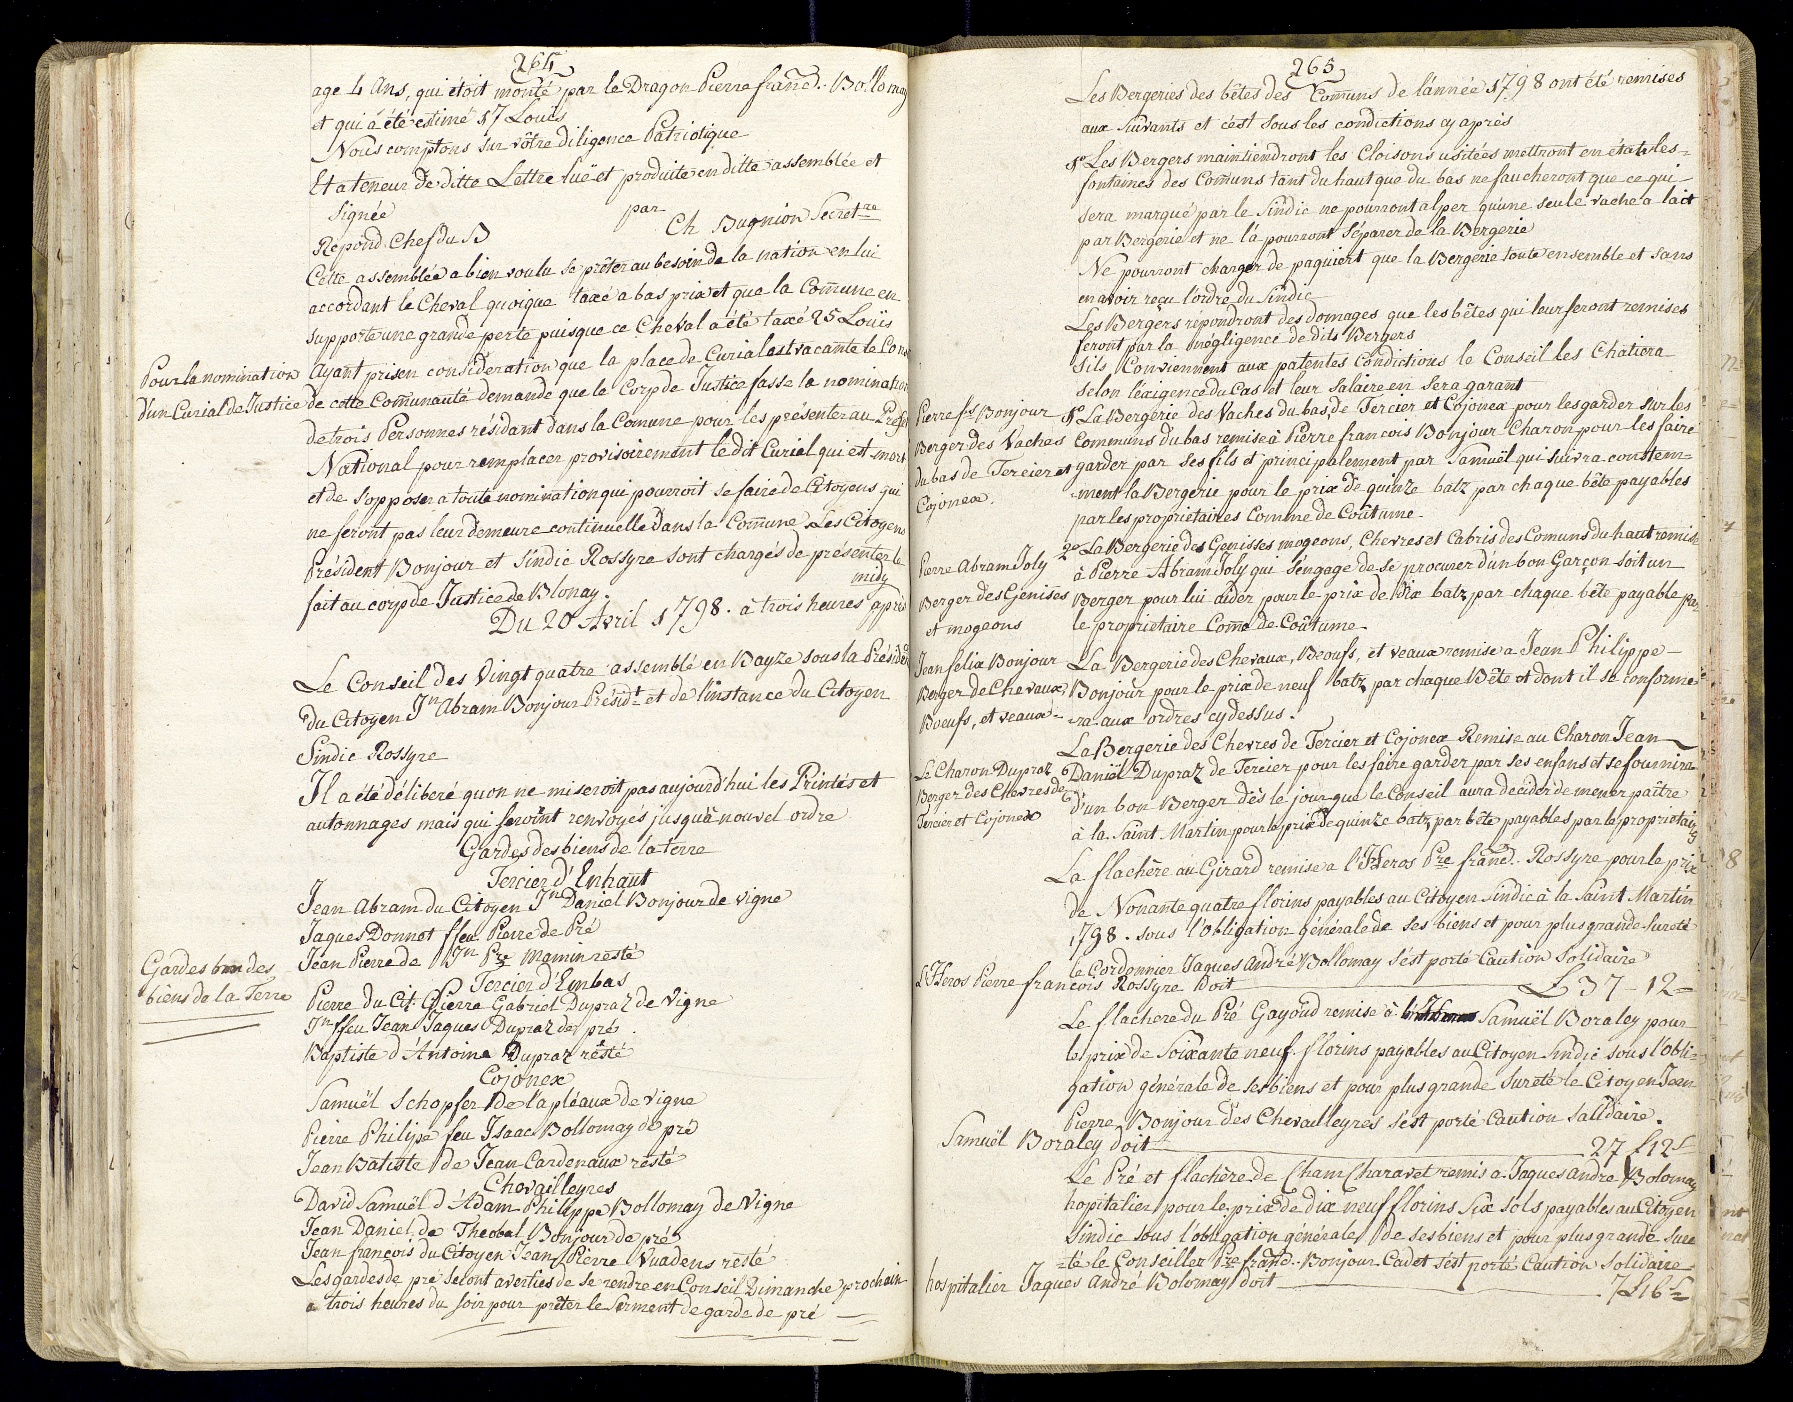 264
age 4 Ans, qui étoit monté par le Dragon Pierre franc.d Bollomay
et qui à été estimé 17 Louïs
Nous comptons sur vôtre diligence Patriotique
Et a teneur de ditte Lettre luë et produite en ditte assemblée et
Signée par Ch Bugnion Secret.re
Repond Chef du B
Cette assemblée a bien voulu se prêter au besoin de la nation en lui
accordant le Cheval quoique taxé a bas prix et que la Comune en
supporte une grande perte puisque ce Cheval a été taxé 25 Louïs
Pour la nomination
d'un Curial de Justice
Ayant pris en consideration que la place de Curial est vacante le Cons
de cette Comunauté demande que le Corp de Justice fasse la nomination
de trois Personnes résidant dans la Comune pour les présenter au Préfet
National pour remplacer provisoirement le dit Curial qui est mort
et de s'opposer a toute nomination qui pourroit se faire de Citoyens qui
ne feront pas leur demeure continuelle dans la Comune Les Citoyens
Président Bonjour et Sindic Rossyre sont chargés de présenter le
fait au corp de Justice de Blonay.
Du 20 Avril 1798. à trois heures après midy
Le Conseil des Vingt quatre assemblé en Bayze sous la Présiden
du Citoyen Jn Abram Bonjour Présidt et de l'instance du Citoyen
Sindic Rossyre
Il a été délibéré quon ne miseroit pas aujourd'hui les Printés et
autonnages mais qui seroint renvoyés jusqu'à nouvel ordre
Gardes des biens de la terre
Tercier d'Enhaut
Jean Abram du Citoyen Jn Daniel Bonjour de vigne
Jaques Donnot ffeu Pierre de Pré
Gardes des
biens de la Terre
Jean Pierre de Jn Pre Mamin resté
Tercier d'Embas
Pierre du Cit. Pierre Gabriel Dupraz de Vigne
Jn ffeu Jean Jaques Dupraz de pré
Baptiste d'Antoine Dupraz resté
Cojonex
Samuël Schopfer de lapléaux de vigne
Pierre Philipe feu Isaac Bollomay de pré
Jean Batiste de Jean Cardenaux resté
Chevailleyres
David Samuël d'Adam Philippe Bollomay de Vigne
Jean Daniel de Theobal Bonjour de pré
Jean francois du Citoyen Jean Pierre Vuadens resté
Les gardes de pré seront averties de se rendre en Conseil Dimanche prochain
a trois heures du soir pour prêter le Serment de garde de pré
265
Les Bergeries des bêtes des Comuns de l'année 1798 ont été remises
aux suivants et c'est sous les condictions cy après
1o Les Bergers maintiendront les Cloisons usitées mettront en état les
fontaines des Comuns tant du haut que du bas ne faucheront que ce qui
sera marqué par le Sindic ne pourront alper qu'une seule vache a lait
par Bergerie et ne l'a pourront séparer de la Bergerie
Ne pourront charger de paquiert que la Bergerie toute ensemble et sans
en avoir reçu l'ordre du Sindic
Les Bergers répondront des domages que les bêtes qui leur seront remises
feront par la négligence de dits Bergers
Sils Conviennent aux patentes Condictions le Conseil les Chatiera
selon l'éxigence du Cas et leur salaire en sera garant
Pierre fs Bonjour
Berger des Vaches
du bas de Tercier et
Cojonex.
1o La Bergerie des Vaches du bas, de Tercier et Cojonex pour les garder sur les
Communs du bas remise à Pierre francois Bonjour Charon pour les faire
garder par ses fils et principalement par Samuël qui suivra constem=
ment la Bergerie pour le prix de quinze batz par chaque bête payables
par les proprietaires Comme de Coûtume.
Pierre Abram Joly
Berger des Genises
et mogeons
2o La Bergerie des Genisses mogeons, Chevres et Cabris des Comuns du haut remise
à Pierre Abram Joly qui s'engage de se procurer d'un bon Garçon soit un
Berger pour lui aider pour le prix de Dix batz par chaque bête payable par
le proprietaire Come de Coûtume
Jean felix Bonjour
Berger de Chevaux
Boeufs, et veaux
La Bergerie des Chevaux, Beoufs, et veaux remise a Jean Philippe
Bonjour pour le prix de neuf batz par chaque Bête et dont il se conforme=
=ra aux ordres cy dessus.
Le Charon Dupraz
Berger des Chevres de
Tercier et Cojonex
La Bergerie des Chevres de Tercier et Cojonex Remise au Charon Jean
Daniël Dupraz de Tercier pour les faire garder par ses enfans et se fournira
d'un bon Berger dès le jour que le Conseil aura decider de mener paître
à la Saint Martin pour le prix de quinze batz par bête payables par le propriétaire
La flachère au Girard remise a l'Heros Pre franc.d Rossyre pour le prix
de Nonante quatre florins payables au Citoyen Sindic à la Saint Martin
1798. sous l'obligation générale de ses biens et pour plus grande sureté
le Cordonnier Jaques André Bollomay s'est porté Caution Solidaire
L'Heros Pierre francois Rossyre Doit L 37 - 12 =
Le flachere du Pré Gayoud remise à Samuël Boraley pour
le prix de Soixante neuf florins payables au Citoyen Sindic sous l'obli=
gation générale de ses biens et pour plus grande sureté le Citoyen Jean
Pierre Bonjour des Chevailleyres s'est porté Caution Salidaire.
Samuël Boraley doit 27 L 12 s
Le Pré et flachère de Cham Charavet remis a Jaques andre Bolomay
hopitalier pour le prix de dix neuf florins Six sols payables au Citoyen
Sindic sous l'obligation générale de ses biens et pour plus grande sure
=té le Conseiller Pre franc.d Bonjour Cadet s'est porté Caution Solidaire
hospitalier Jaques André Bolomay doit 7 L 16 s